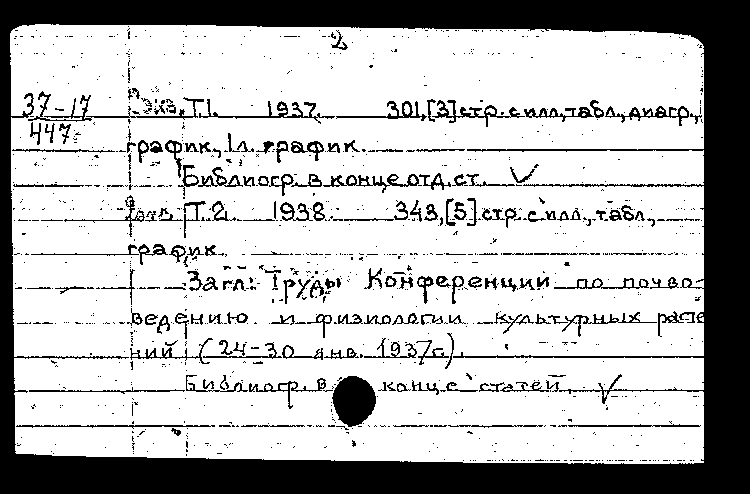 2
37-17
447
Экз. Т.1. 1937. 301,[3] стр. с илл., табл., диагр.,
график., 1 л. график.
Библиогр. в конце отд. ст. ✓
Т. 2. 1938. 343,[5] стр. с илл., табл.,
график.
Загл: Труды Конференции по почво-
ведению и физиологии культурных расте
ний (24-30 янв. 1937г.).
Библиогр. в конце статей. ✓